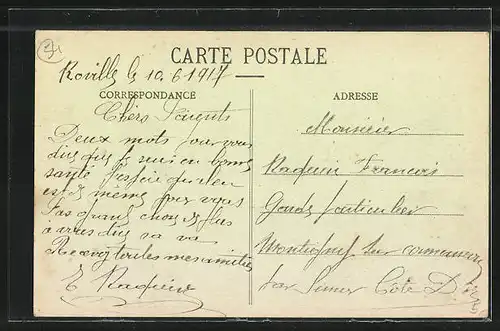 CARTE POSTALE
Roville le 10.6.1917
CORRESPONDANCE
ADRESSE
Chers Parents
Deux mots pour vous
dire que je suis en bonne
santé J'espère qu'il en
est de même pour vous
Pas grand chose de plus
à vous dire sa va
Recevez toutes mes amitiés
Monsieur
François
Garde particulier
Montigny sur
par Semur Côte D'or